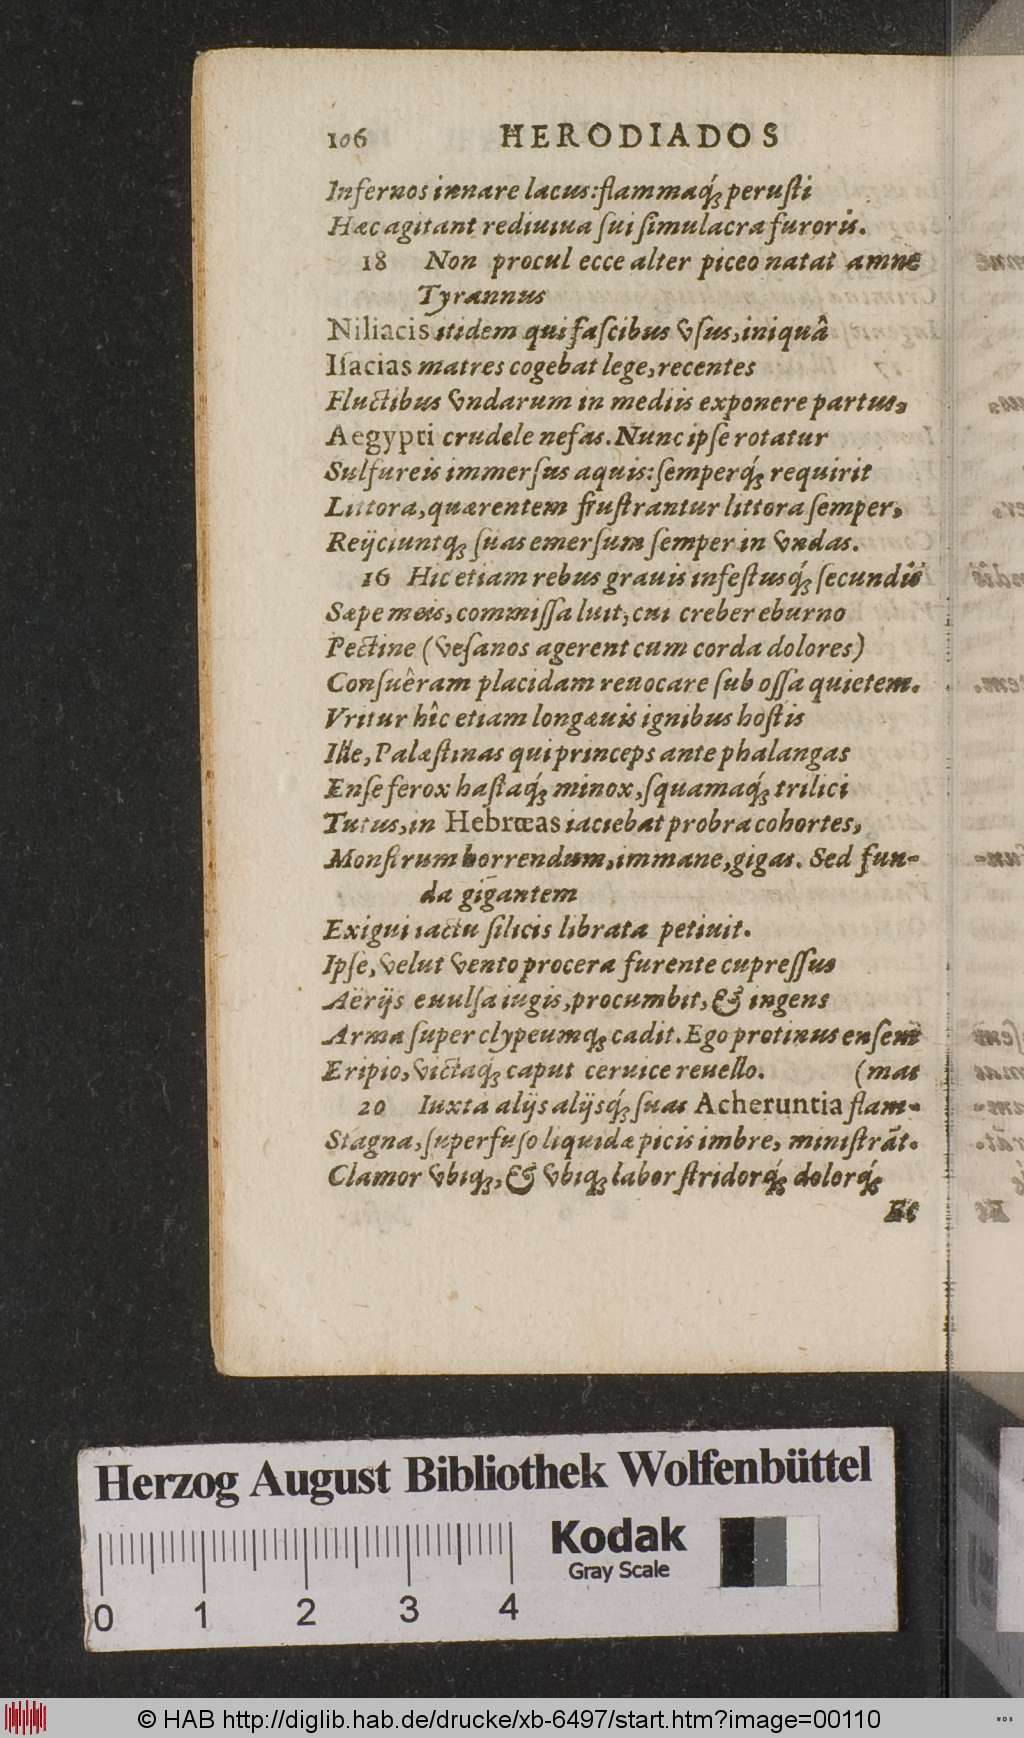 106 HERODIADOS
Infernos innare lacus: flammaq́ꝫ perusti
Hæc agitant rediuiua sui simulacra furoris.
18 Non procul ecce alter piceo natat amnē
Tyrannus
Niliacis itidem qui fascibus vsus, iniquâ
Isacias matres cogebat lege, recentes
Fluctibus vndarum in mediis exponere partus,
Aegypti crudele nefas. Nunc ipse rotatur
Sulfureis immersus aquis: semperq́ꝫ requirit
Littora, quærentem frustrantur littora semper,
Reijciuntqꝫ suas emersum semper in vndas.
16 Hic etiam rebus grauis infestusq́ꝫ secundis
Sæpe meis, commissa luit, cui creber eburno
Pectine (vesanos agerent cum corda dolores)
Consuêram placidam reuocare sub ossa quietem.
Vritur hîc etiam longæuis ignibus hostis
Ille, Palæstinas qui princeps ante phalangas
Ense ferox hastaq́ꝫ minox, squamaq́ꝫ trilici
Tutus, in Hebrœas iaciebat probra cohortes,
Monstrum horrendum, immane, gigas. Sed fun-
da gigantem
Exigui iactu silicis librata petiuit.
Ipse, velut vento procera furente cupressus
Aërijs euulsa iugis, procumbit, & ingens
Arma super clypeumqꝫ cadit. Ego protinus ensem
Eripio, victaq́ꝫ caput ceruice reuello. (mas
20 Iuxta alijs alijsq́ꝫ suas Acheruntia flam-
Stagna, superfuso liquidæ picis imbre, ministrãt.
Clamor vbiqꝫ, & vbiqꝫ labor stridorq́ꝫ dolorq́ꝫ
Et
Herzog August Bibliothek Wolfenbüttel
Kodak
Gray Scale
0 1 2 3 4
© HAB http://diglib.hab.de/drucke/xb-6497/start.htm?image=00110